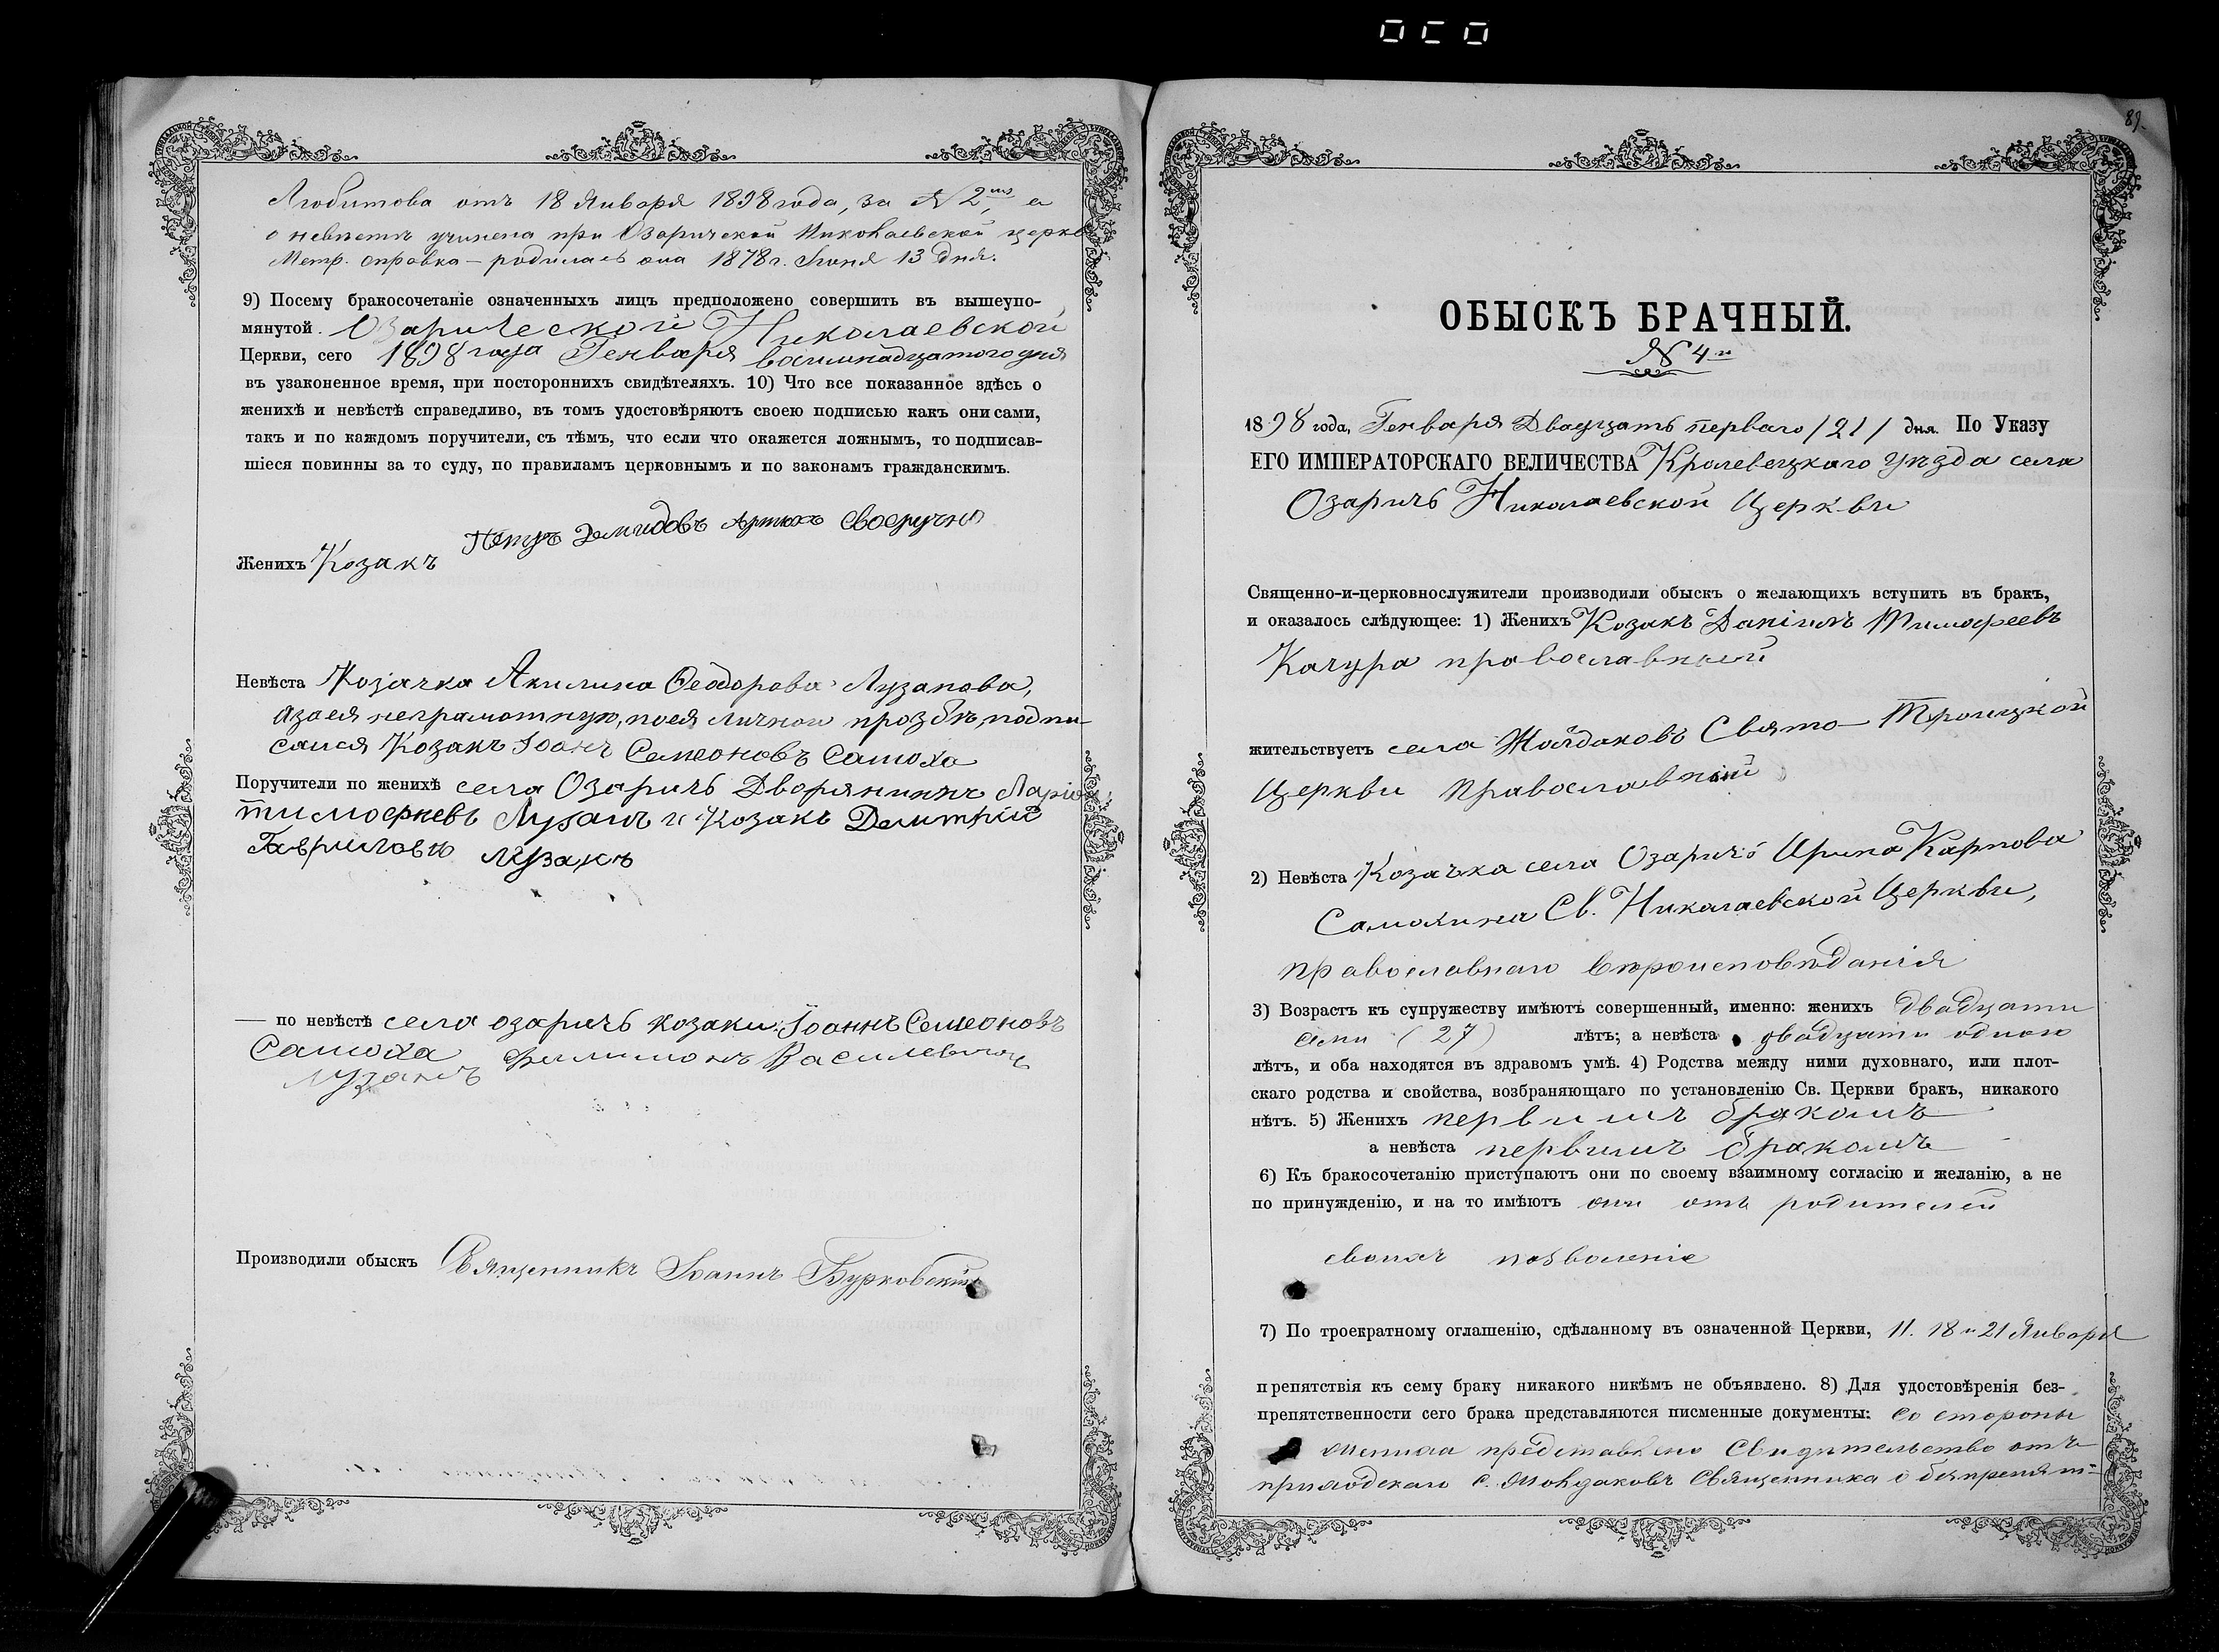 Любитова отъ 18 Января 1898 года, за № 2, а
о невѣстѣ учинена при Озаричской Николаевской церкв
Метр. справка — родилась она 1878 г. Іюня 13 дня.
9) Посему бракосочетаніе означенныхъ лицъ предположено совершить въ вышеупо-
мянутой Озарической Николаевской
Церкви, сего 1898 года Генваря восимнадцатого дня
въ узаконенное время, при постороннихъ свидѣтеляхъ. 10) Что все показанное здѣсь о
женихѣ и невѣстѣ справедливо, въ томъ удостовѣряютъ своею подписью какъ они сами,
такъ и по каждомъ поручители, съ тѣмъ, что если что окажется ложнымъ, то подписав-
шіеся повинны за то суду, по правиламъ церковнымъ и по законамъ гражданскимъ.
Женихъ Козакъ Петръ Демидовъ Артюхъ своеручно
Невѣста Козачка Акилина Ѳеодорова Лузанова,
а за ея неграмотную, по ея личной прозбѣ, подпи-
сался Козакъ Іоанъ Семеоновъ Самоха
Поручители по женихѣ села Озаричъ Дворянинъ Ларіо
тимофѣевъ Лузанъ и Козакъ Демитрій
Гавриловъ лузанъ
— по невѣстѣ села озаричъ козаки: Іоаннъ Семеоновъ
Самоха Филимонъ Василевичъ
лузанъ
Производили обыскъ Священникъ Іоаннъ Бурковскій
89.
ОБЫСКЪ БРАЧНЫЙ.
№ 4
1898 года, Генваря Двадцать перваго /21/ дня. По Указу
ЕГО ИМПЕРАТОРСКАГО ВЕЛИЧЕСТВА Кролевецкаго уѣзда села
Озаричъ Николаевской Церкви
Священно-и-церковнослужители производили обыскъ о желающихъ вступить въ бракъ,
и оказалось слѣдующее: 1) Женихъ Козакъ Даніилъ Тимофеевъ
Качура православный
жительствуетъ села Жолдаковъ Свято-Троицкой
Церкви православный
2) Невѣста Козачка села Озаричъ Ирина Карпова
Самохина Св. Николаевской Церкви,
православнаго вѣроисповѣданія
3) Возрастъ къ супружеству имѣютъ совершенный, именно: женихъ двадцати
семи (27) лѣтъ; а невѣста двадцати одного
лѣтъ, и оба находятся въ здравомъ умѣ. 4) Родства между ними духовнаго, или плот-
скаго родства и свойства, возбраняющаго по установленію Св. Церкви бракъ, никакого
нѣтъ. 5) Женихъ первымъ бракомъ
а невѣста первымъ бракомъ
6) Къ бракосочетанію приступаютъ они по своему взаимному согласію и желанію, а не
по принужденію, и на то имѣютъ они отъ родителей
своихъ позволеніе
7) По троекратному оглашенію, сдѣланному въ означенной Церкви, 11. 18 и 21 Января
препятствія къ сему браку никакого никѣмъ не объявлено. 8) Для удостовѣренія без-
препятственности сего брака представляются писменные документы: со стороны
жениха представлено Свидѣтельство отъ
приходскаго с. Жолдаковъ Священника о безпрепят-